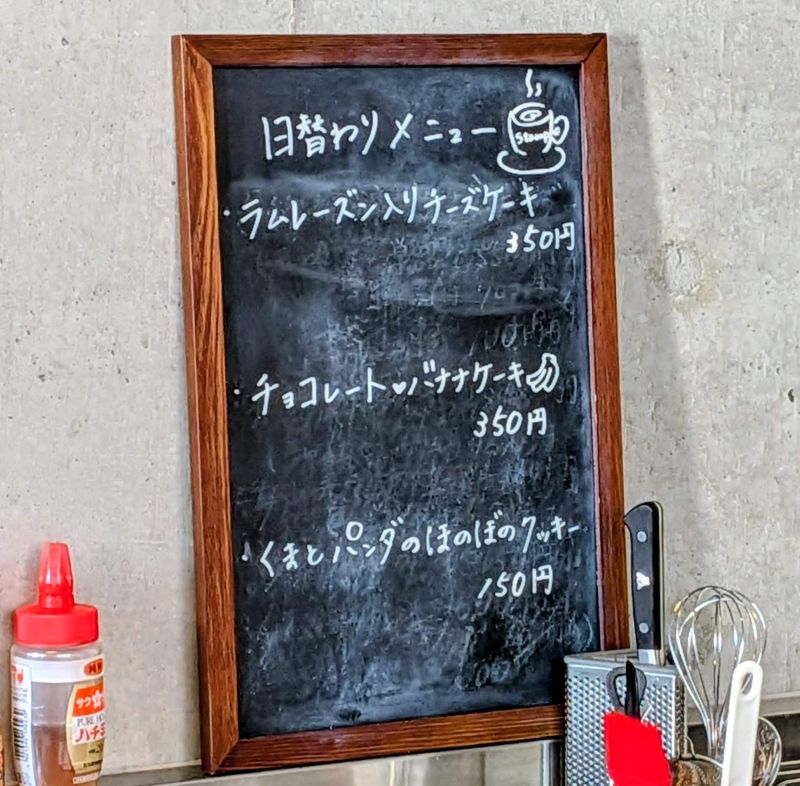 日替わりメニュー
Stamp
・ラムレーズン入りチーズケーキ
350円
・チョコレート♥バナナケーキ
350円
・くまとパンダのほのぼのクッキー
150円
サクラ印
PURE HONEY